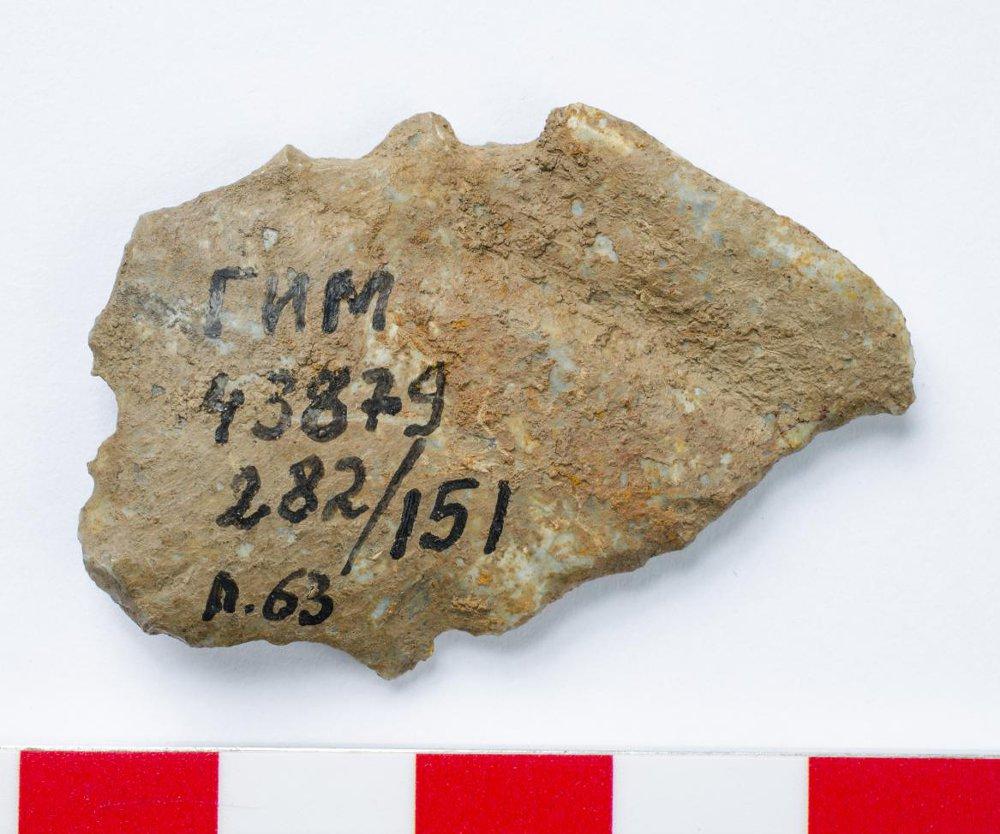 ГИМ
43879
282/151
л.63